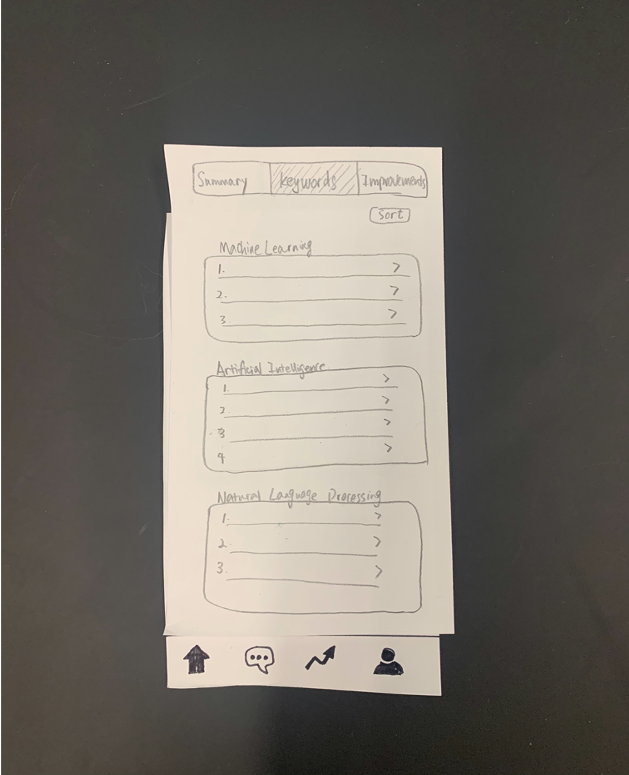 Summary Keywords Improvements
Sort
Machine Learning
1.
2.
3
Artificial Intelligence
1.
2
3
4
Natural Language Processing
1.
2.
3.